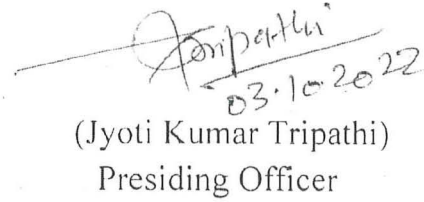 Tripathi
03.10.2022
(Jyoti Kumar Tripathi)
Presiding Officer